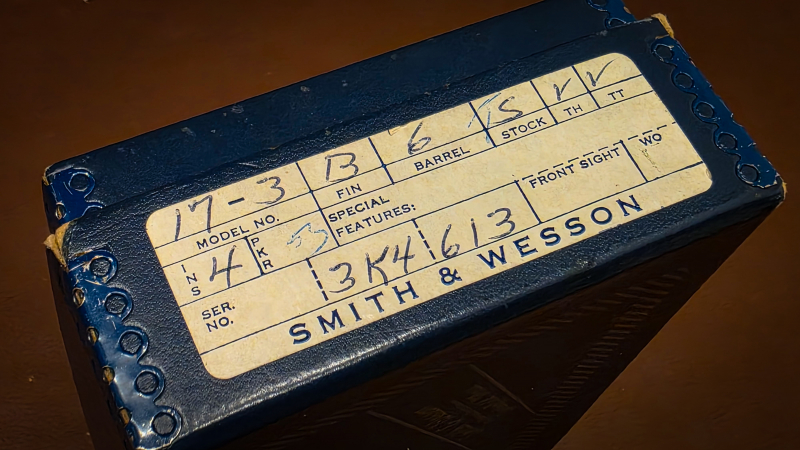 17-3 B 6 TS √ √
MODEL NO. FIN BARREL STOCK TH TT
INS 4 PKR 53 SPECIAL FEATURES: FRONT SIGHT WO
SER. NO. 3K4 613
SMITH & WESSON